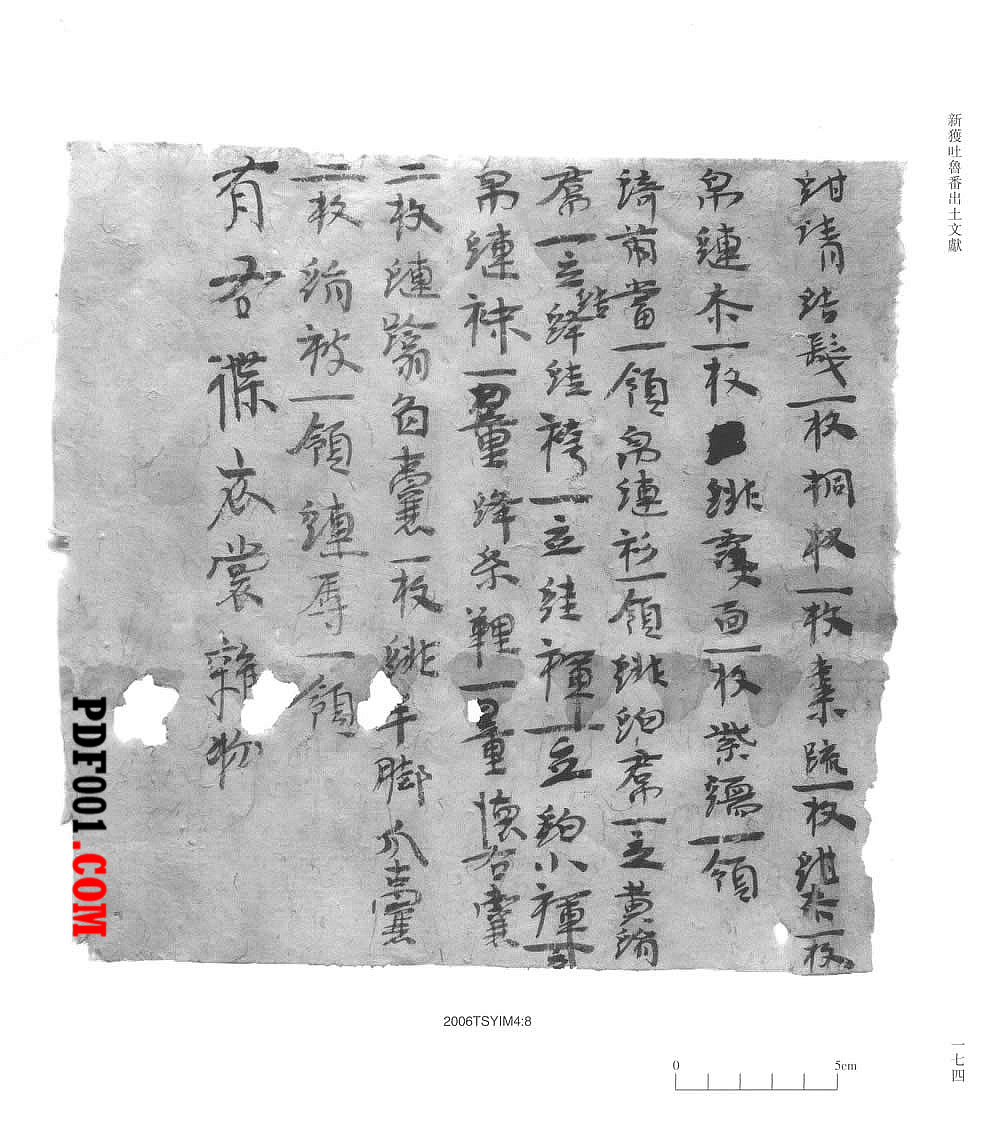 新獲吐魯番出土文獻
紺請結髮一枚桐杈一枚素疏一枚紺叅一枚
帛縺叅一枚緋覆面一枚紫縺一領
綺裲當一領帛縺衫一領緋絇帬一立黃絹
帬一立絳結絓袴一立絓褌一立絇小褌一立
帛縺袜一量絳糸鞾一量懷右囊
二枚縺蹹臼囊一枚緋手腳爪囊
二枚絹被一領縺辱一領
右右條衣裳雜物
2006TSYIM4:8
0 5cm
一七四
PDF001.COM